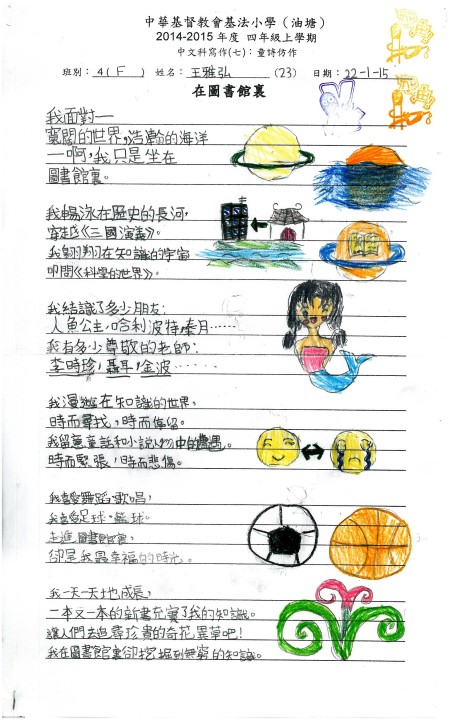 中華基督教會基法小學（油塘）
2014-2015 年度 四年級上學期
中文科寫作(七)：童詩仿作
班別：4(F) 姓名：王雅弘 (23) 日期：22-1-15
在圖書館裏
我面對一
寬闊的世界，浩瀚的海洋
一啊，我只是坐在
圖書館裏。
我暢泳在歷史的長河，
穿越《三國演義》。
我翱翔在知識的宇宙
叩問《科學的世界》。
我結識了多少朋友：
人魚公主，哈利波特，秦月……
我有多少尊敬的老師：
李時珍，聶耳，金波……
我漫遊在知識的世界，
時而尋找，時而
我留意童話和小說人物中的遭遇。
時而緊張，時而悲傷。
我喜愛舞蹈，歌唱，
我喜愛足球，籃球。
走進圖書館裏，
卻是我最幸福的時光。
我一天一天地成長，
一本又一本的新書充實了我的知識。
讓人們去追尋珍貴的奇花異草吧！
我在圖書館裏卻挖掘到無窮的知識。